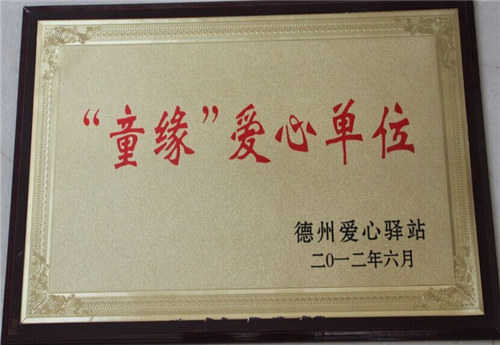 “童缘”爱心单位
德州爱心驿站
二〇一二年六月